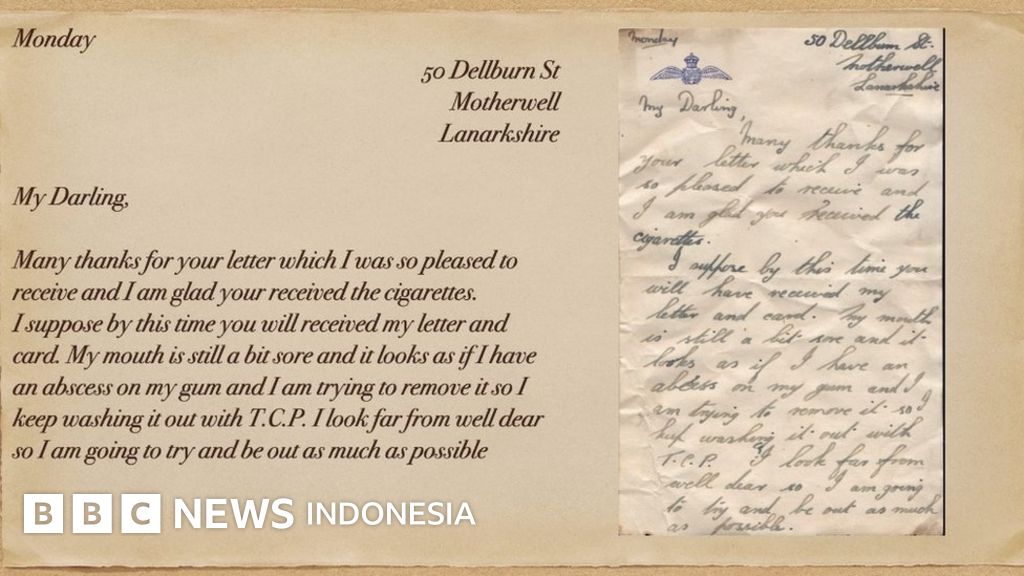 Monday
50 Dellburn St
Motherwell
Lanarkshire
My Darling,
Many thanks for your letter which I was so pleased to
receive and I am glad your received the cigarettes.
I suppose by this time you will received my letter and
card. My mouth is still a bit sore and it looks as if I have
an abscess on my gum and I am trying to remove it so I
keep washing it out with T.C.P. I look far from well dear
so I am going to try and be out as much as possible
BBC NEWS INDONESIA
Monday
50 Dellburn St.
Motherwell
Lanarkshire
My Darling,
Many thanks for
your letter which I was
so pleased to receive and
I am glad you received the
cigarettes.
I suppose by this time you
will have received my
letter and card. My mouth
is still a bit sore and it
looks as if I have an
abscess on my gum and I
am trying to remove it so I
keep washing it out with
T.C.P. I look far from
well dear so I am going
to try and be out as much
as possible.